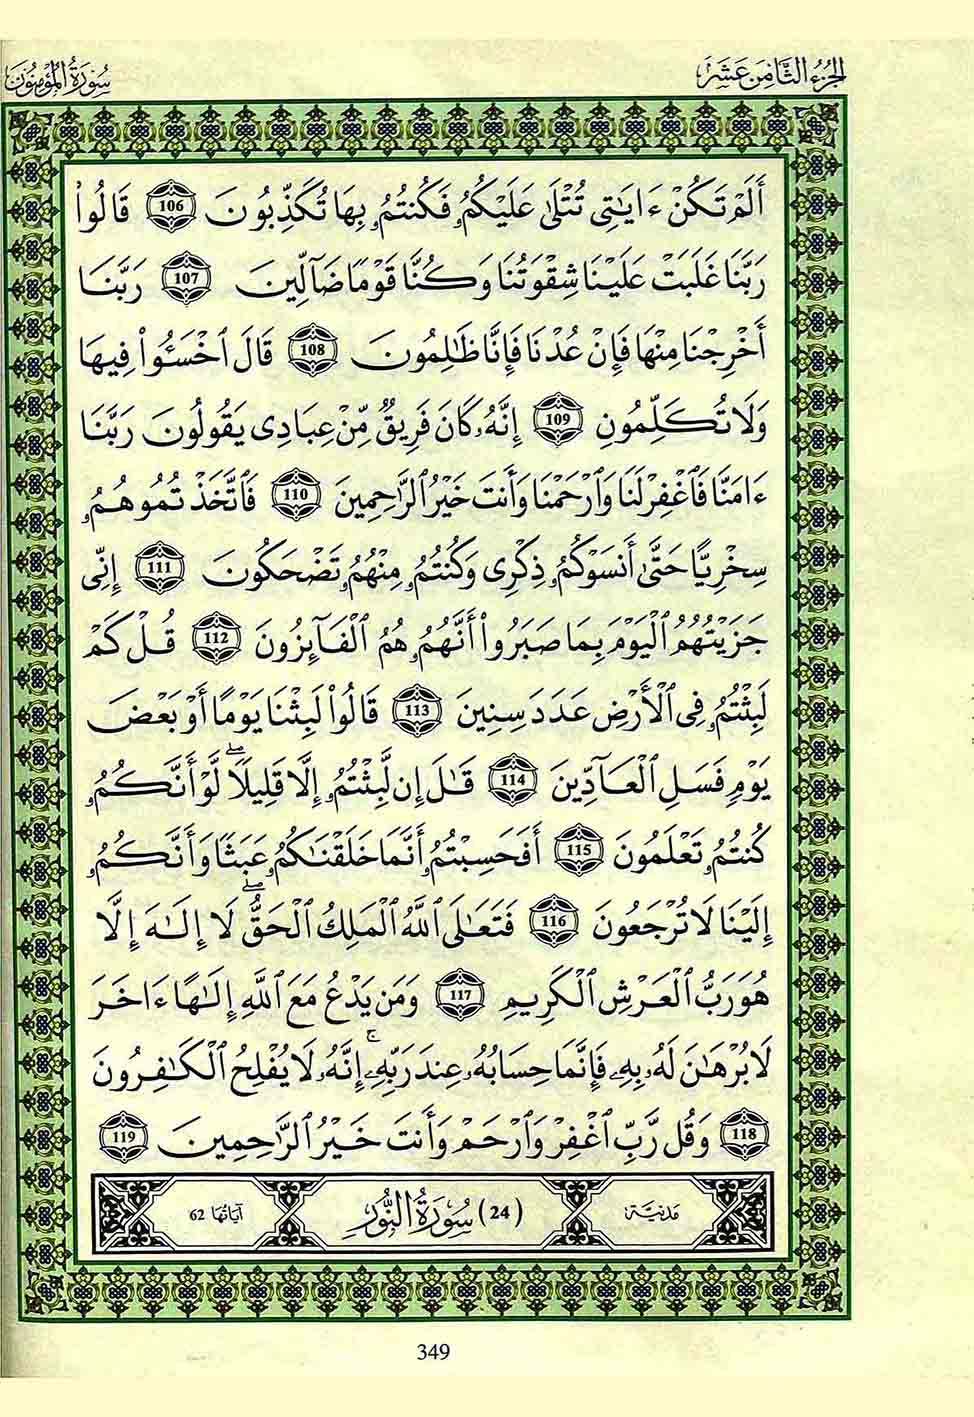 الجزء الثامن عشر
سورة المؤمنون
أَلَمْ تَكُنْ ءَايَٰتِي تُتْلَىٰ عَلَيْكُمُۥ فَكُنتُمُۥ بِهَا تُكَذِّبُونَ 106 قَالُواْ
رَبَّنَا غَلَبَتْ عَلَيْنَا شِقْوَتُنَا وَكُنَّا قَوْمًا ضَآلِّينَ 107 رَبَّنَا
أَخْرِجْنَا مِنْهَا فَإِنْ عُدْنَا فَإِنَّا ظَٰلِمُونَ 108 قَالَ ٱخْسَـُٔواْ فِيهَا
وَلَا تُكَلِّمُونِ 109 إِنَّهُۥ كَانَ فَرِيقٌ مِّنْ عِبَادِى يَقُولُونَ رَبَّنَا
ءَامَنَّا فَٱغْفِرْ لَنَا وَٱرْحَمْنَا وَأَنتَ خَيْرُ ٱلرَّٰحِمِينَ 110 فَٱتَّخَذْتُمُوهُمُۥ
سِخْرِيًّا حَتَّىٰ أَنسَوْكُمُۥ ذِكْرِى وَكُنتُمُۥ مِنْهُمُۥ تَضْحَكُونَ 111 إِنِّى
جَزَيْتُهُمُ ٱلْيَوْمَ بِمَا صَبَرُواْ أَنَّهُمُۥ هُمُ ٱلْفَآئِزُونَ 112 قُلْ كَمْ
لَبِثْتُمُۥ فِى ٱلْأَرْضِ عَدَدَ سِنِينَ 113 قَالُواْ لَبِثْنَا يَوْمًا أَوْ بَعْضَ
يَوْمٍ فَسَلِ ٱلْعَآدِّينَ 114 قَٰلَ إِن لَّبِثْتُمُۥ إِلَّا قَلِيلًا ۖ لَّوْ أَنَّكُمُۥ
كُنتُمُۥ تَعْلَمُونَ 115 أَفَحَسِبْتُمُۥ أَنَّمَا خَلَقْنَٰكُمُۥ عَبَثًا وَأَنَّكُمُۥ
إِلَيْنَا لَا تُرْجَعُونَ 116 فَتَعَٰلَى ٱللَّهُ ٱلْمَلِكُ ٱلْحَقُّ ۖ لَا إِلَٰهَ إِلَّا
هُوَ رَبُّ ٱلْعَرْشِ ٱلْكَرِيمِ 117 وَمَن يَدْعُ مَعَ ٱللَّهِ إِلَٰهًا ءَاخَرَ
لَا بُرْهَٰنَ لَهُۥ بِهِۦ فَإِنَّمَا حِسَابُهُۥ عِندَ رَبِّهِۦ ۚ إِنَّهُۥ لَا يُفْلِحُ ٱلْكَٰفِرُونَ
118 وَقُل رَّبِّ ٱغْفِرْ وَٱرْحَمْ وَأَنتَ خَيْرُ ٱلرَّٰحِمِينَ 119
مدنية (24) سورة النور آياتها 62
349